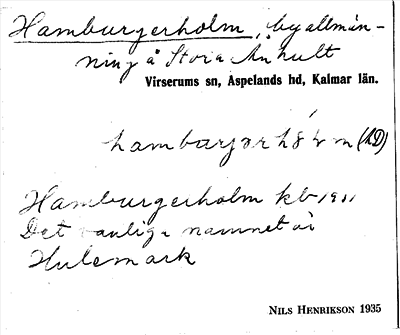 Hamburgerholm, byallmän-
ning å Stora Anhult
Virserums sn, Aspelands hd, Kalmar län.
Hamburgerholm kb 1911
Det vanliga namnet är
Hulemark
NILS HENRIKSON 1935